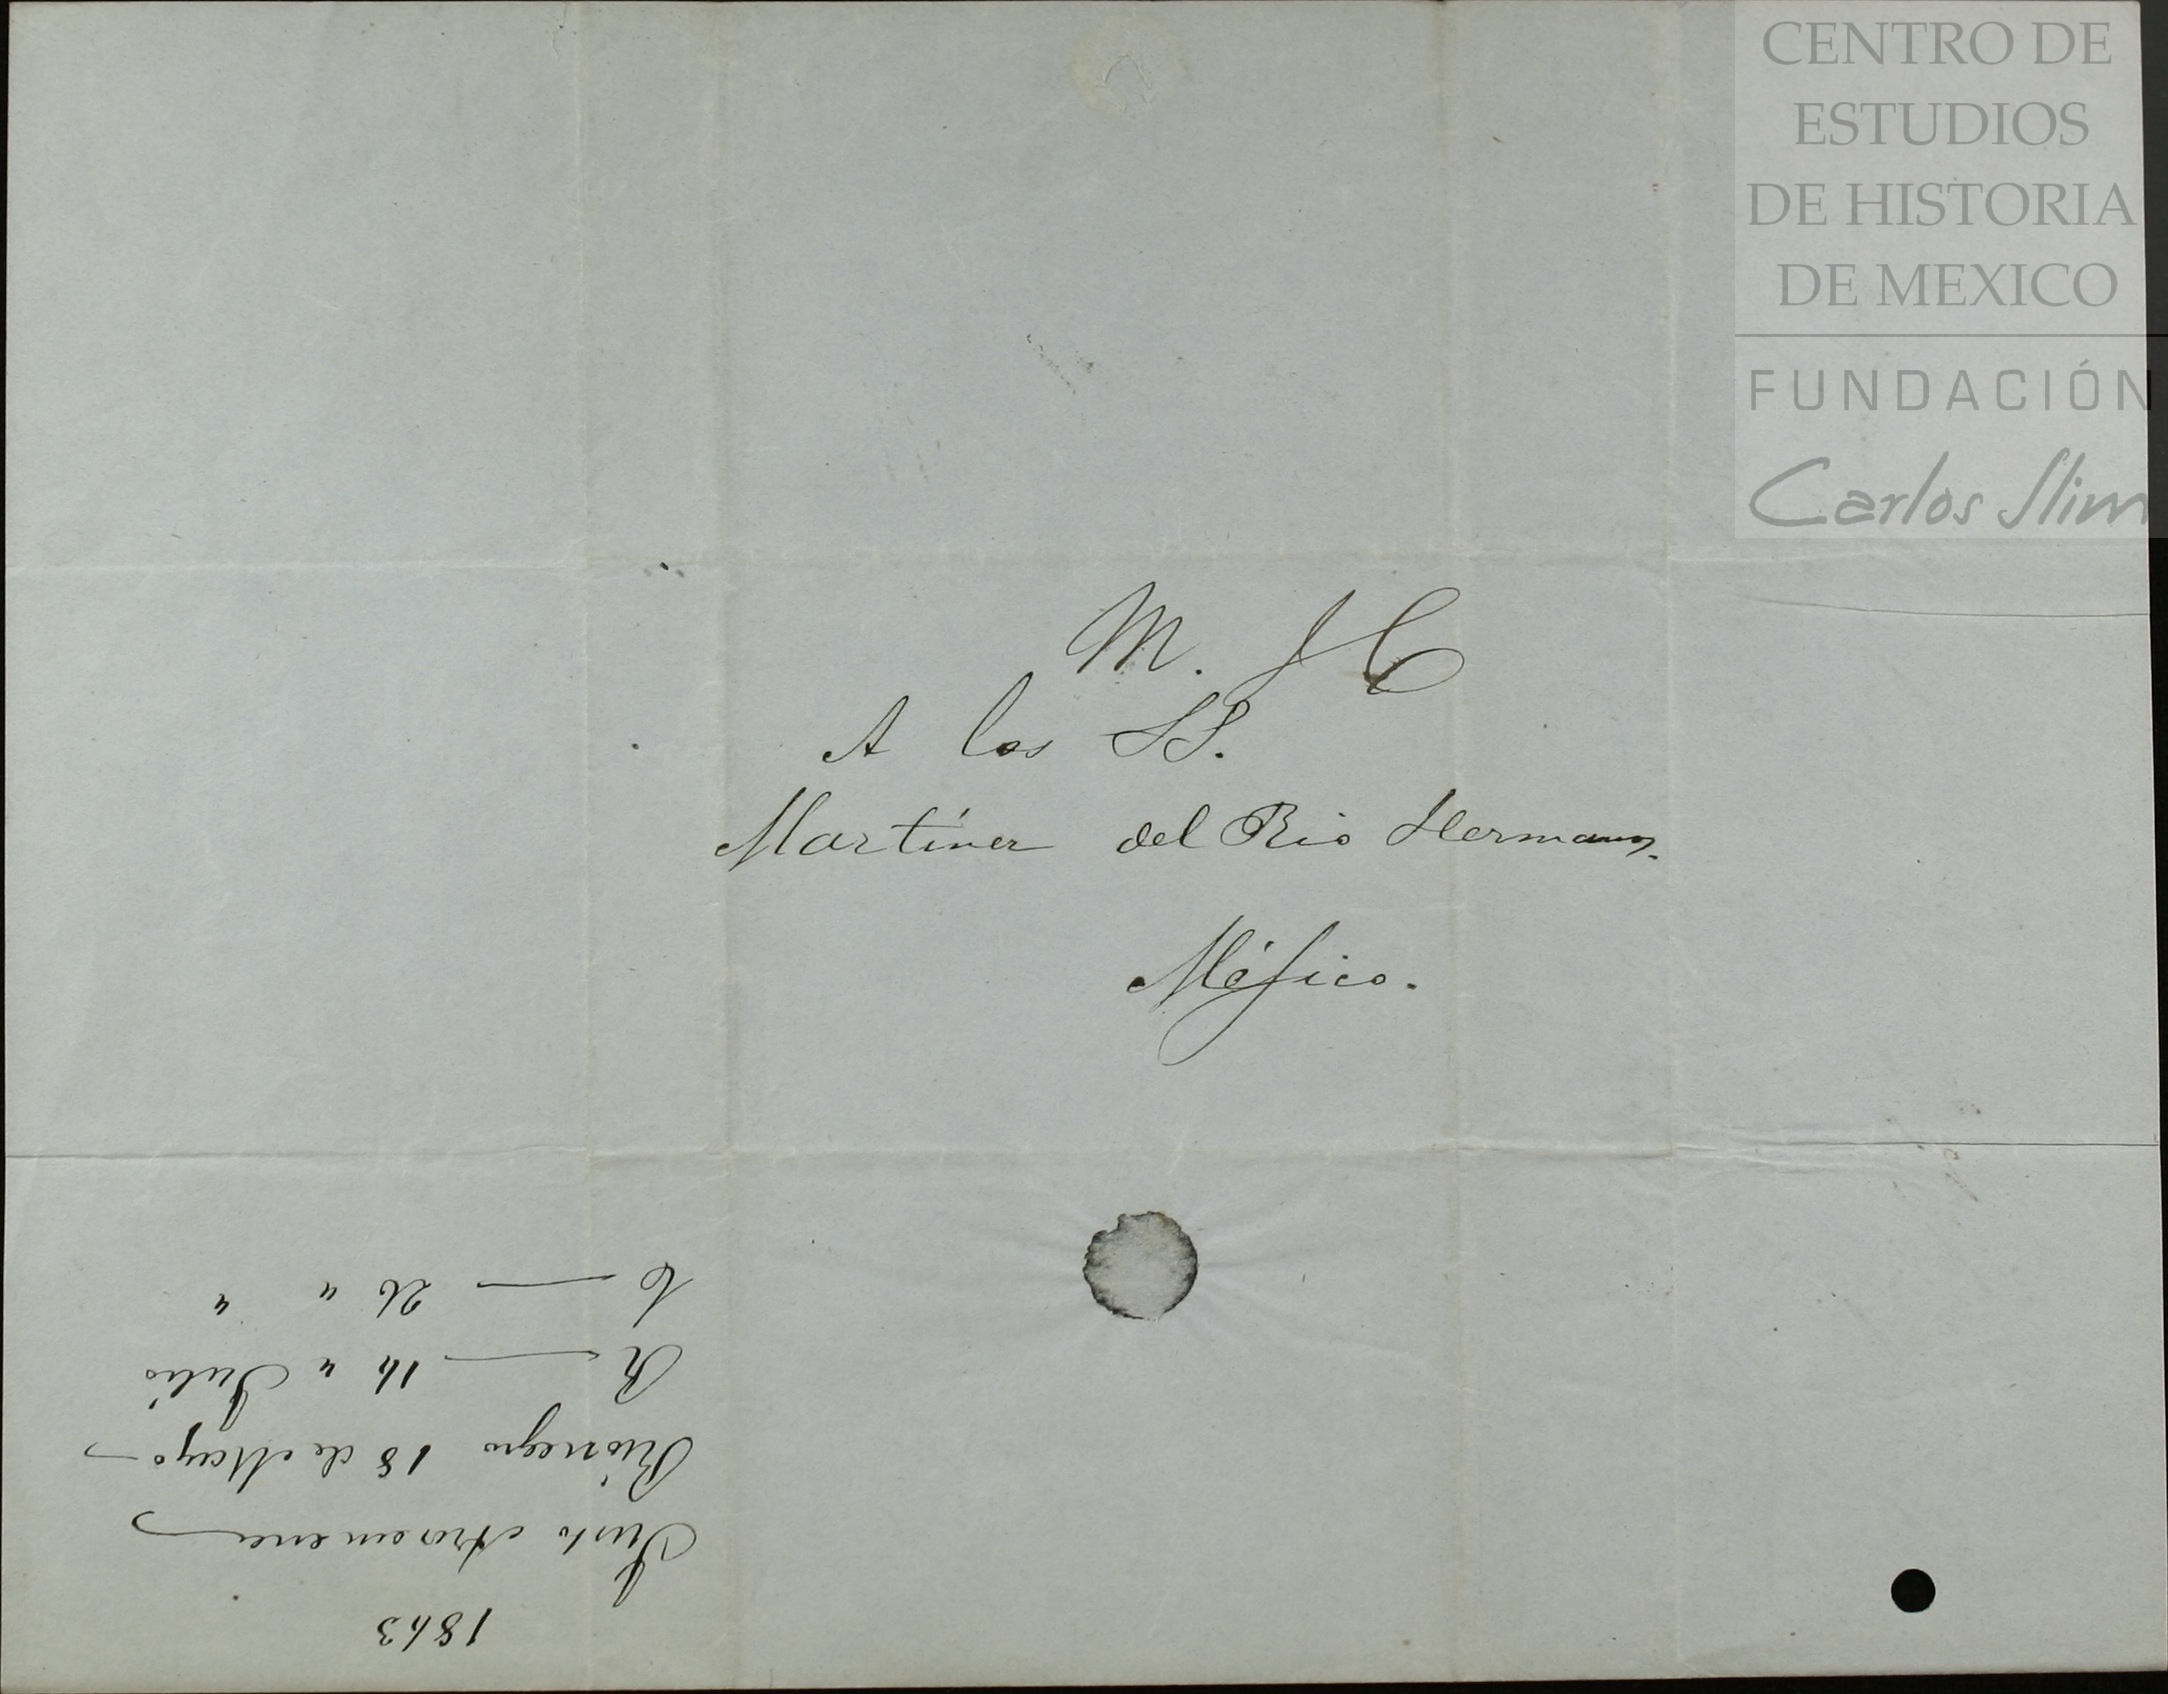 CENTRO DE
ESTUDIOS
DE HISTORIA
DE MEXICO
FUNDACIÓN
Carlos Slim
M. J C
A los SS.
Martinez del Rio Hermanos.
Méjico.
1843
Justo Arosemena
Rionegro 18 de Mayo
R — 14 " Julio
C — 26 " "